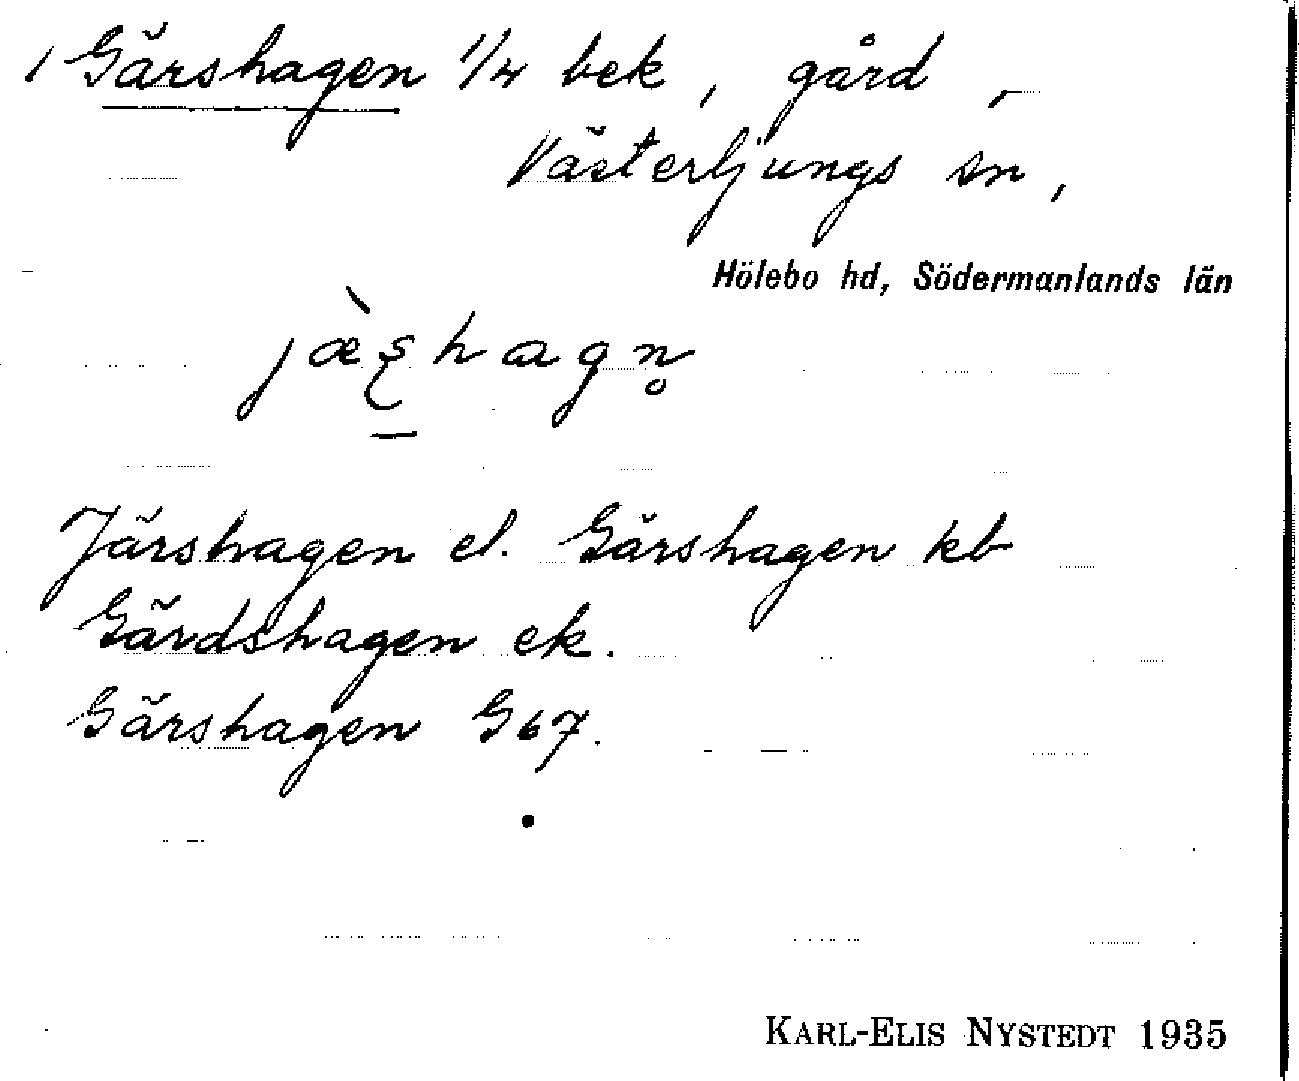 Gärshagen 1/4 bek, gård,
Västerljungs sn,
Hölebo hd, Södermanlands län
jæ̀ʂhagn̥
Järshagen el. Gärshagen kb
Gärdshagen ek.
Gärshagen G67.
KARL-ELIS NYSTEDT 1935